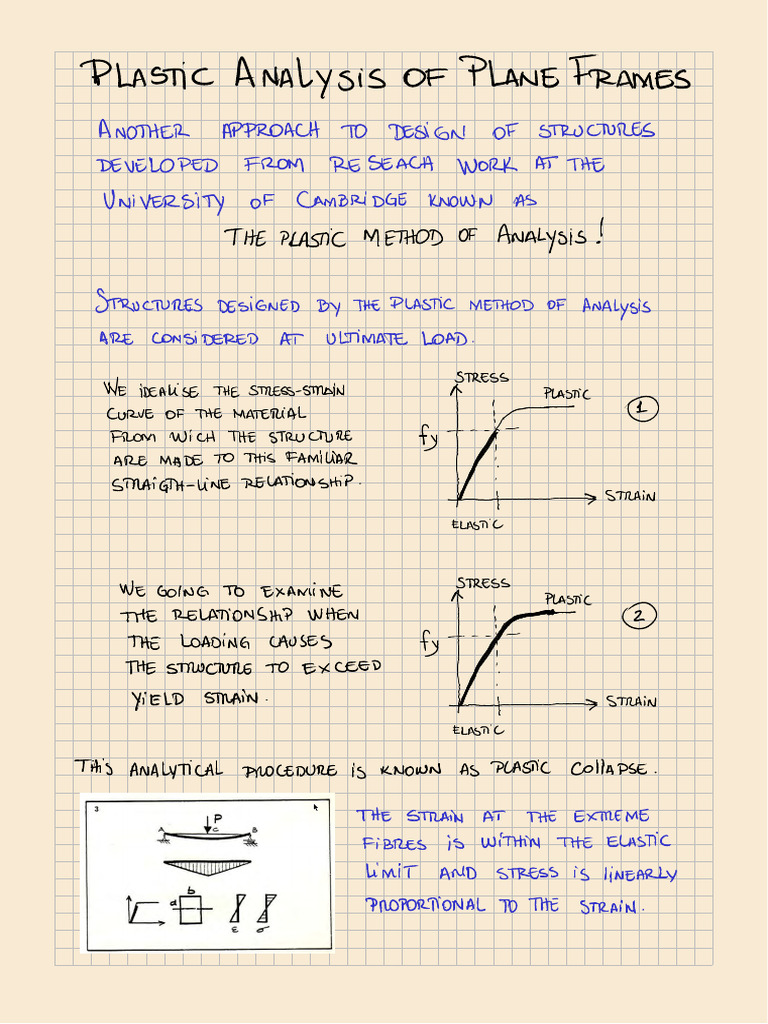 PLASTIC ANALYSIS OF PLANE FRAMES
ANOTHER APPROACH TO DESIGN OF STRUCTURES
DEVELOPED FROM RESEACH WORK AT THE
UNIVERSITY OF CAMBRIDGE KNOWN AS
THE PLASTIC METHOD OF ANALYSIS!
STRUCTURES DESIGNED BY THE PLASTIC METHOD OF ANALYSIS
ARE CONSIDERED AT ULTIMATE LOAD.
WE IDEALISE THE STRESS-STRAIN
CURVE OF THE MATERIAL
FROM WICH THE STRUCTURE
ARE MADE TO THIS FAMILIAR
STRAIGTH-LINE RELATIONSHIP.
STRESS
PLASTIC
1
fy
STRAIN
ELASTIC
WE GOING TO EXAMINE
THE RELATIONSHIP WHEN
THE LOADING CAUSES
THE STRUCTURE TO EXCEED
YIELD STRAIN.
STRESS
PLASTIC
2
fy
STRAIN
ELASTIC
THIS ANALYTICAL PROCEDURE IS KNOWN AS PLASTIC COLLAPSE.
3
P
A C B
b
a
ε σ
THE STRAIN AT THE EXTREME
FIBRES IS WITHIN THE ELASTIC
LIMIT AND STRESS IS LINEARLY
PROPORTIONAL TO THE STRAIN.